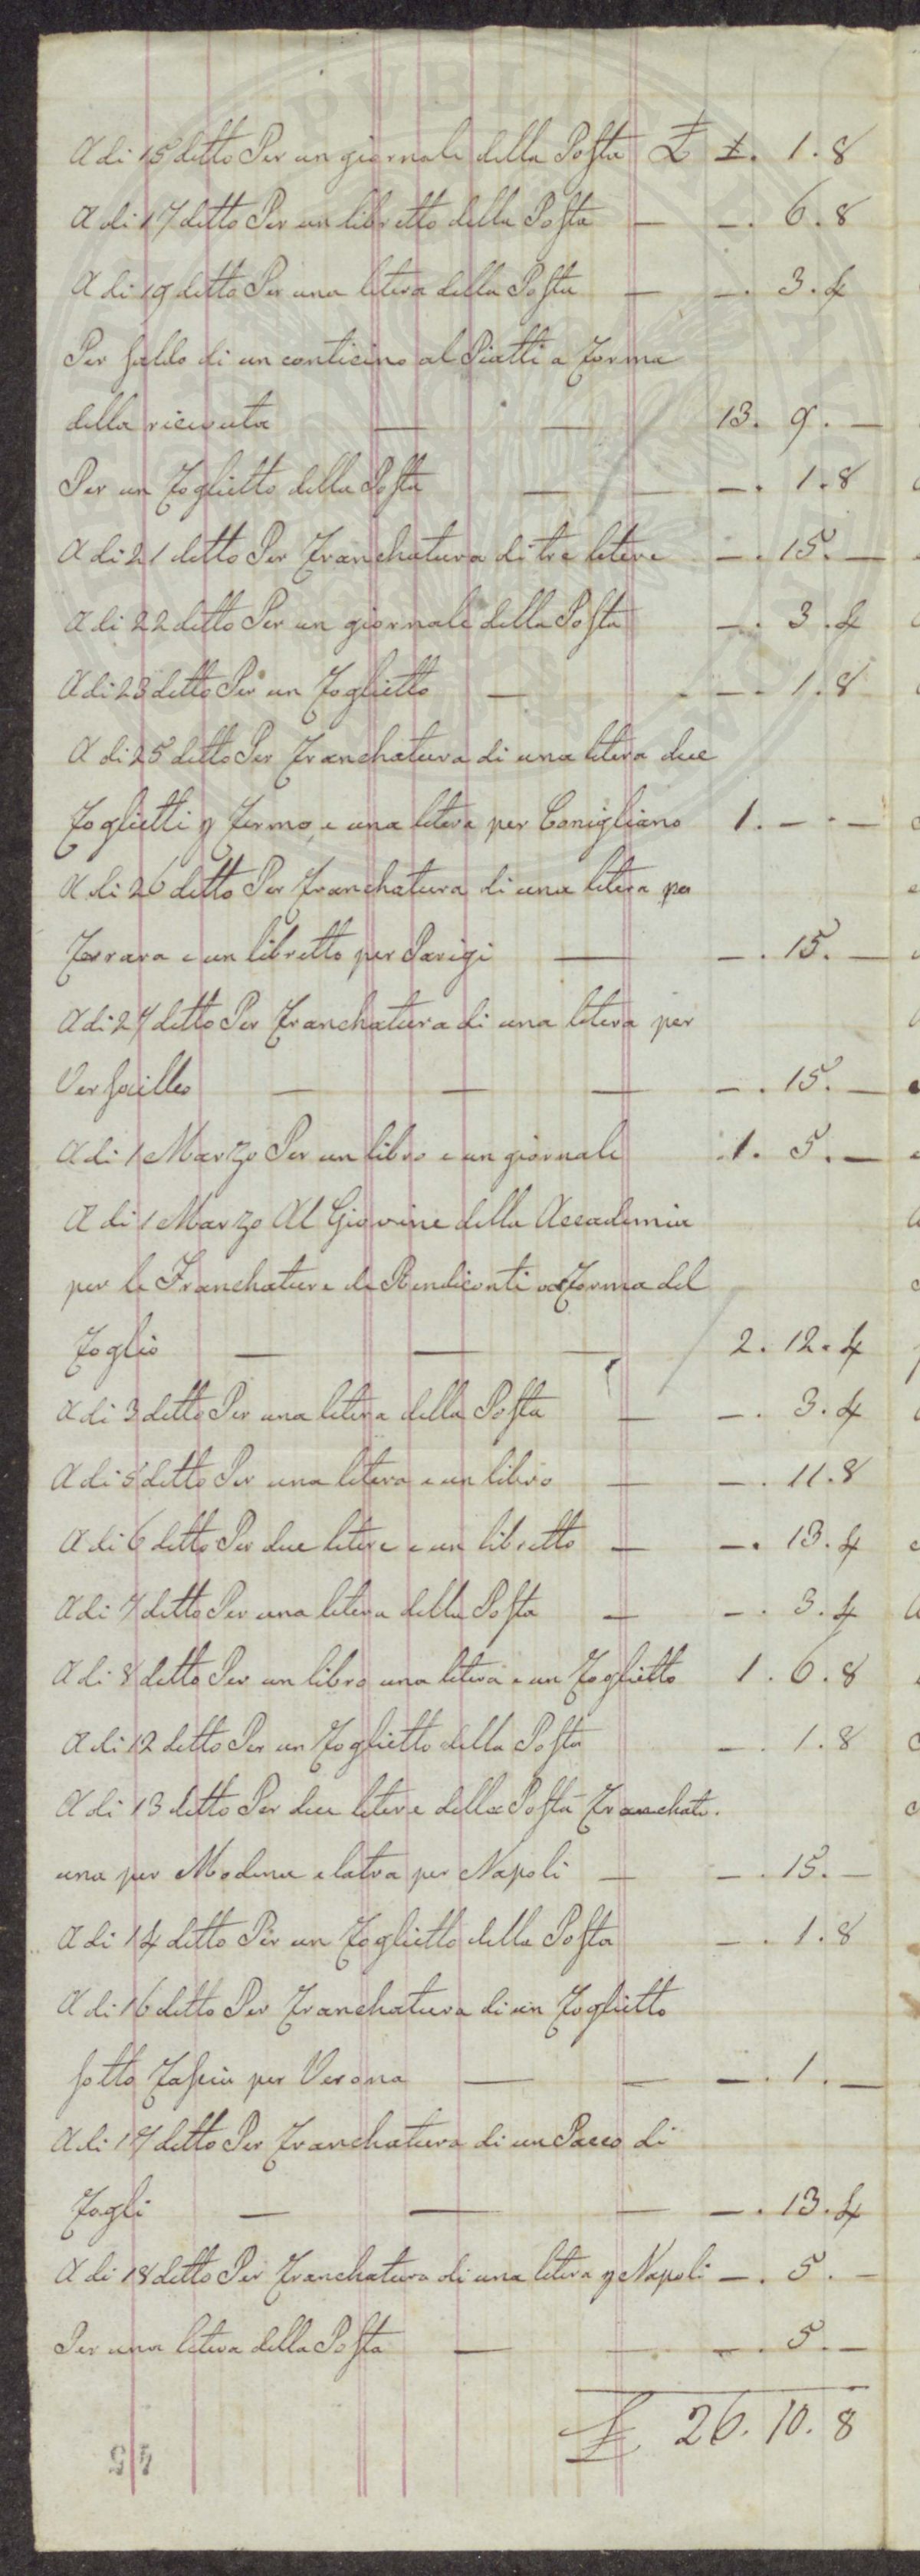 A di 15 ditto Per un giornale della Posta £ -. 1.8
A di 17 ditto Per un libretto della Posta — -. 6.8
A di 19 ditto Per una litera della Posta — -. 3.4
Per saldo di un conticino al Piatti a forma
della ricevuta — — 13. 9. —
Per un foglietto della Posta — -. 1.8
A di 21 ditto Per franchatura di tre litere -. 15. —
A di 22 ditto Per un giornale della Posta -. 3.4
A di 23 ditto Per un foglietto — -. 1.8
A di 25 ditto Per franchatura di una litera due
foglietti p fermo e una litera per Conigliano 1. -. —
A di 26 ditto Per franchatura di una litera per
Ferrara e un libretto per Parigi — -. 15. —
A di 27 ditto Per franchatura di una litera per
Versailles — — — -. 15. —
A di 1 Marzo Per un libro e un giornale 1. 5. —
A di 1 Marzo Al Giovine della Accademia
per le Franchature de Rendiconti a forma del
foglio — — — 2. 12. 4
A di 3 ditto Per una litera della Posta — -. 3. 4
A di 5 ditto Per una litera e un libro — -. 11.8
A di 6 ditto Per due litere e un libretto — -. 13. 4
A di 7 ditto Per una litera della Posta — -. 3. 4
A di 8 ditto Per un libro una litera e un foglietto 1. 6. 8
A di 12 ditto Per un foglietto della Posta -. 1. 8
A di 13 ditto Per due litere della Posta franchate.
una per Modena e latra per Napoli — -. 15. —
A di 14 ditto Per un foglietto della Posta -. 1. 8
A di 16 ditto Per franchatura di un foglietto
sotto fascia per Verona — — -. 1. —
A di 17 ditto Per franchatura di un Pacco di
fogli — — — -. 13. 4
A di 18 ditto Per franchatura di una litera p Napoli -. 5. —
Per una litera della Posta — — -. 5. —
£ 26. 10. 8